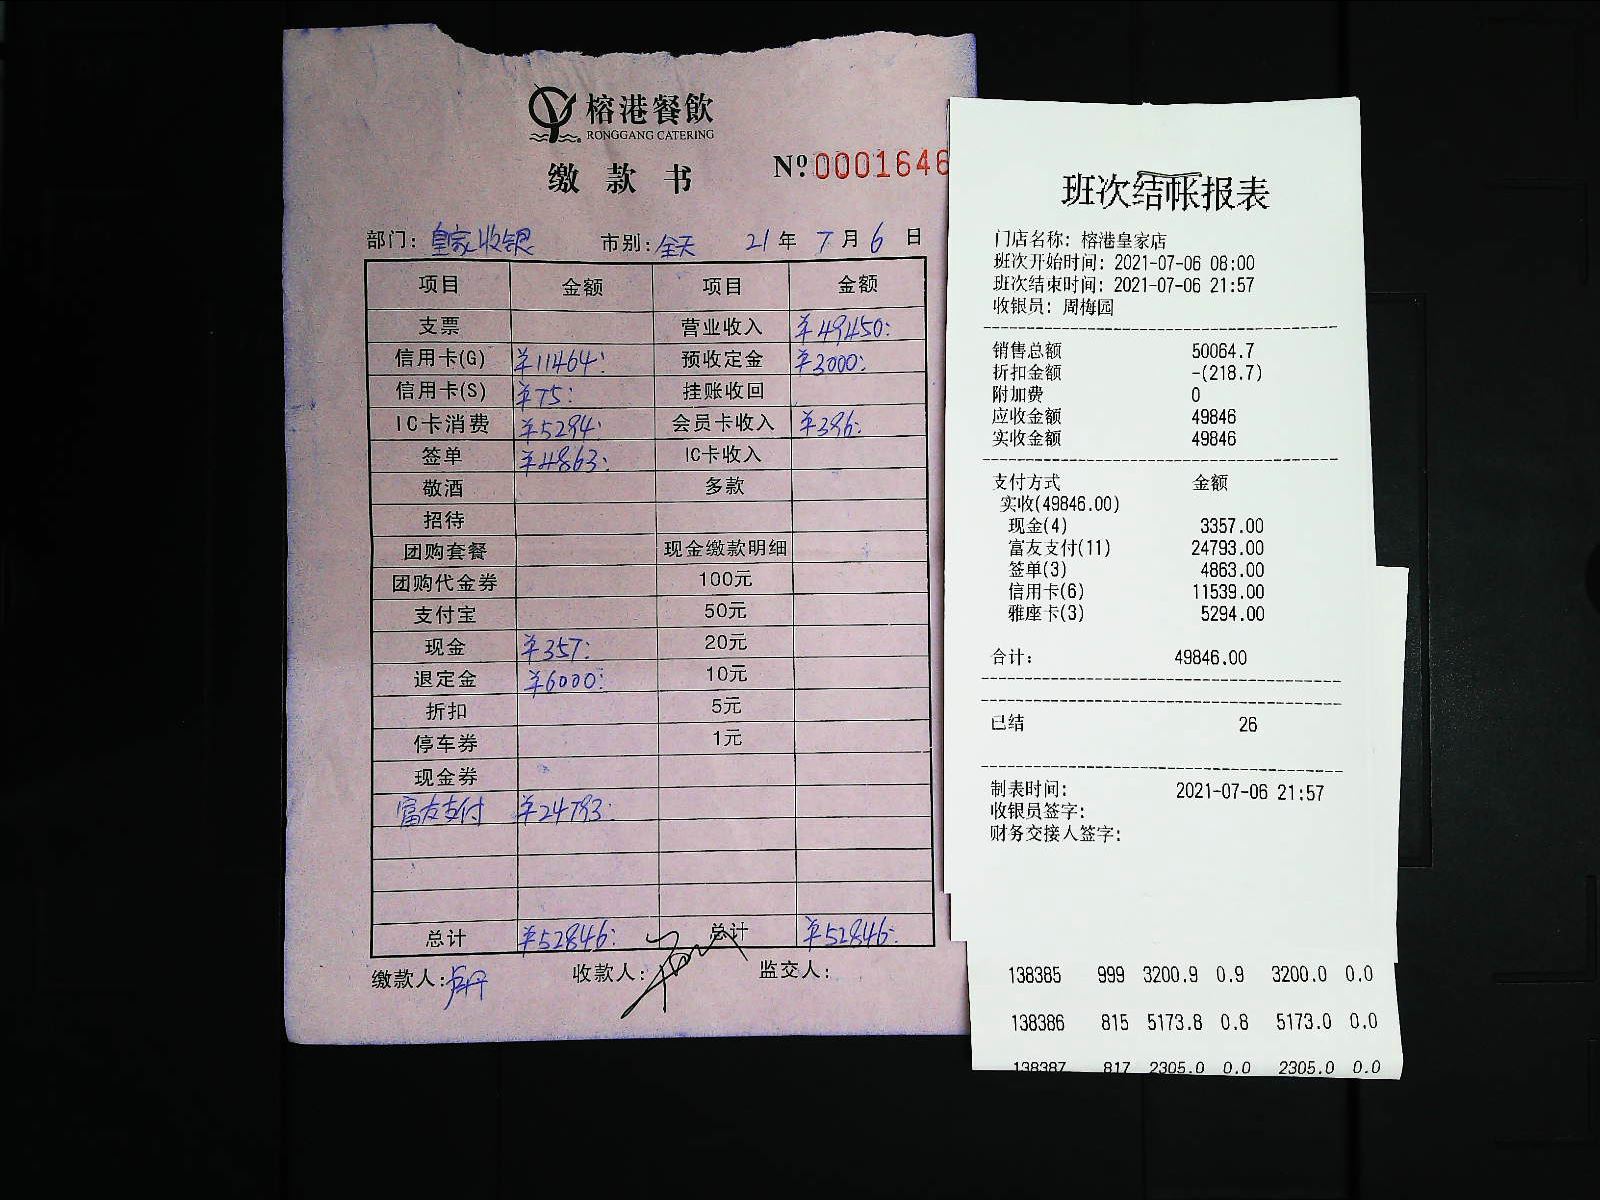 榕港餐飲
RONGGANG CATERING
缴款书
Nº 0001646
部门: 皇家收银 市别: 全天 21年 7月 6日
项目 金额 项目 金额
支票 营业收入 ¥49450:
信用卡(G) ¥11464: 预收定金 ¥3000:
信用卡(S) ¥75: 挂账收回
IC卡消费 ¥5294: 会员卡收入 ¥396:
签单 ¥4863: IC卡收入
敬酒 多款
招待
团购套餐 现金缴款明细
团购代金券 100元
支付宝 50元
现金 ¥357: 20元
退定金 ¥6000: 10元
折扣 5元
停车券 1元
现金券
富友支付 ¥24793:
总计 ¥52846: 总计 ¥52846:
缴款人: 卢丹 收款人: 监交人:
班次结帐报表
门店名称: 榕港皇家店
班次开始时间: 2021-07-06 08:00
班次结束时间: 2021-07-06 21:57
收银员: 周梅园
销售总额 50064.7
折扣金额 -(218.7)
附加费 0
应收金额 49846
实收金额 49846
支付方式 金额
实收(49846.00)
现金(4) 3357.00
富友支付(11) 24793.00
签单(3) 4863.00
信用卡(6) 11539.00
雅座卡(3) 5294.00
合计: 49846.00
已结 26
制表时间: 2021-07-06 21:57
收银员签字:
财务交接人签字:
138385 999 3200.9 0.9 3200.0 0.0
138386 815 5173.8 0.8 5173.0 0.0
138387 817 2305.0 0.0 2305.0 0.0